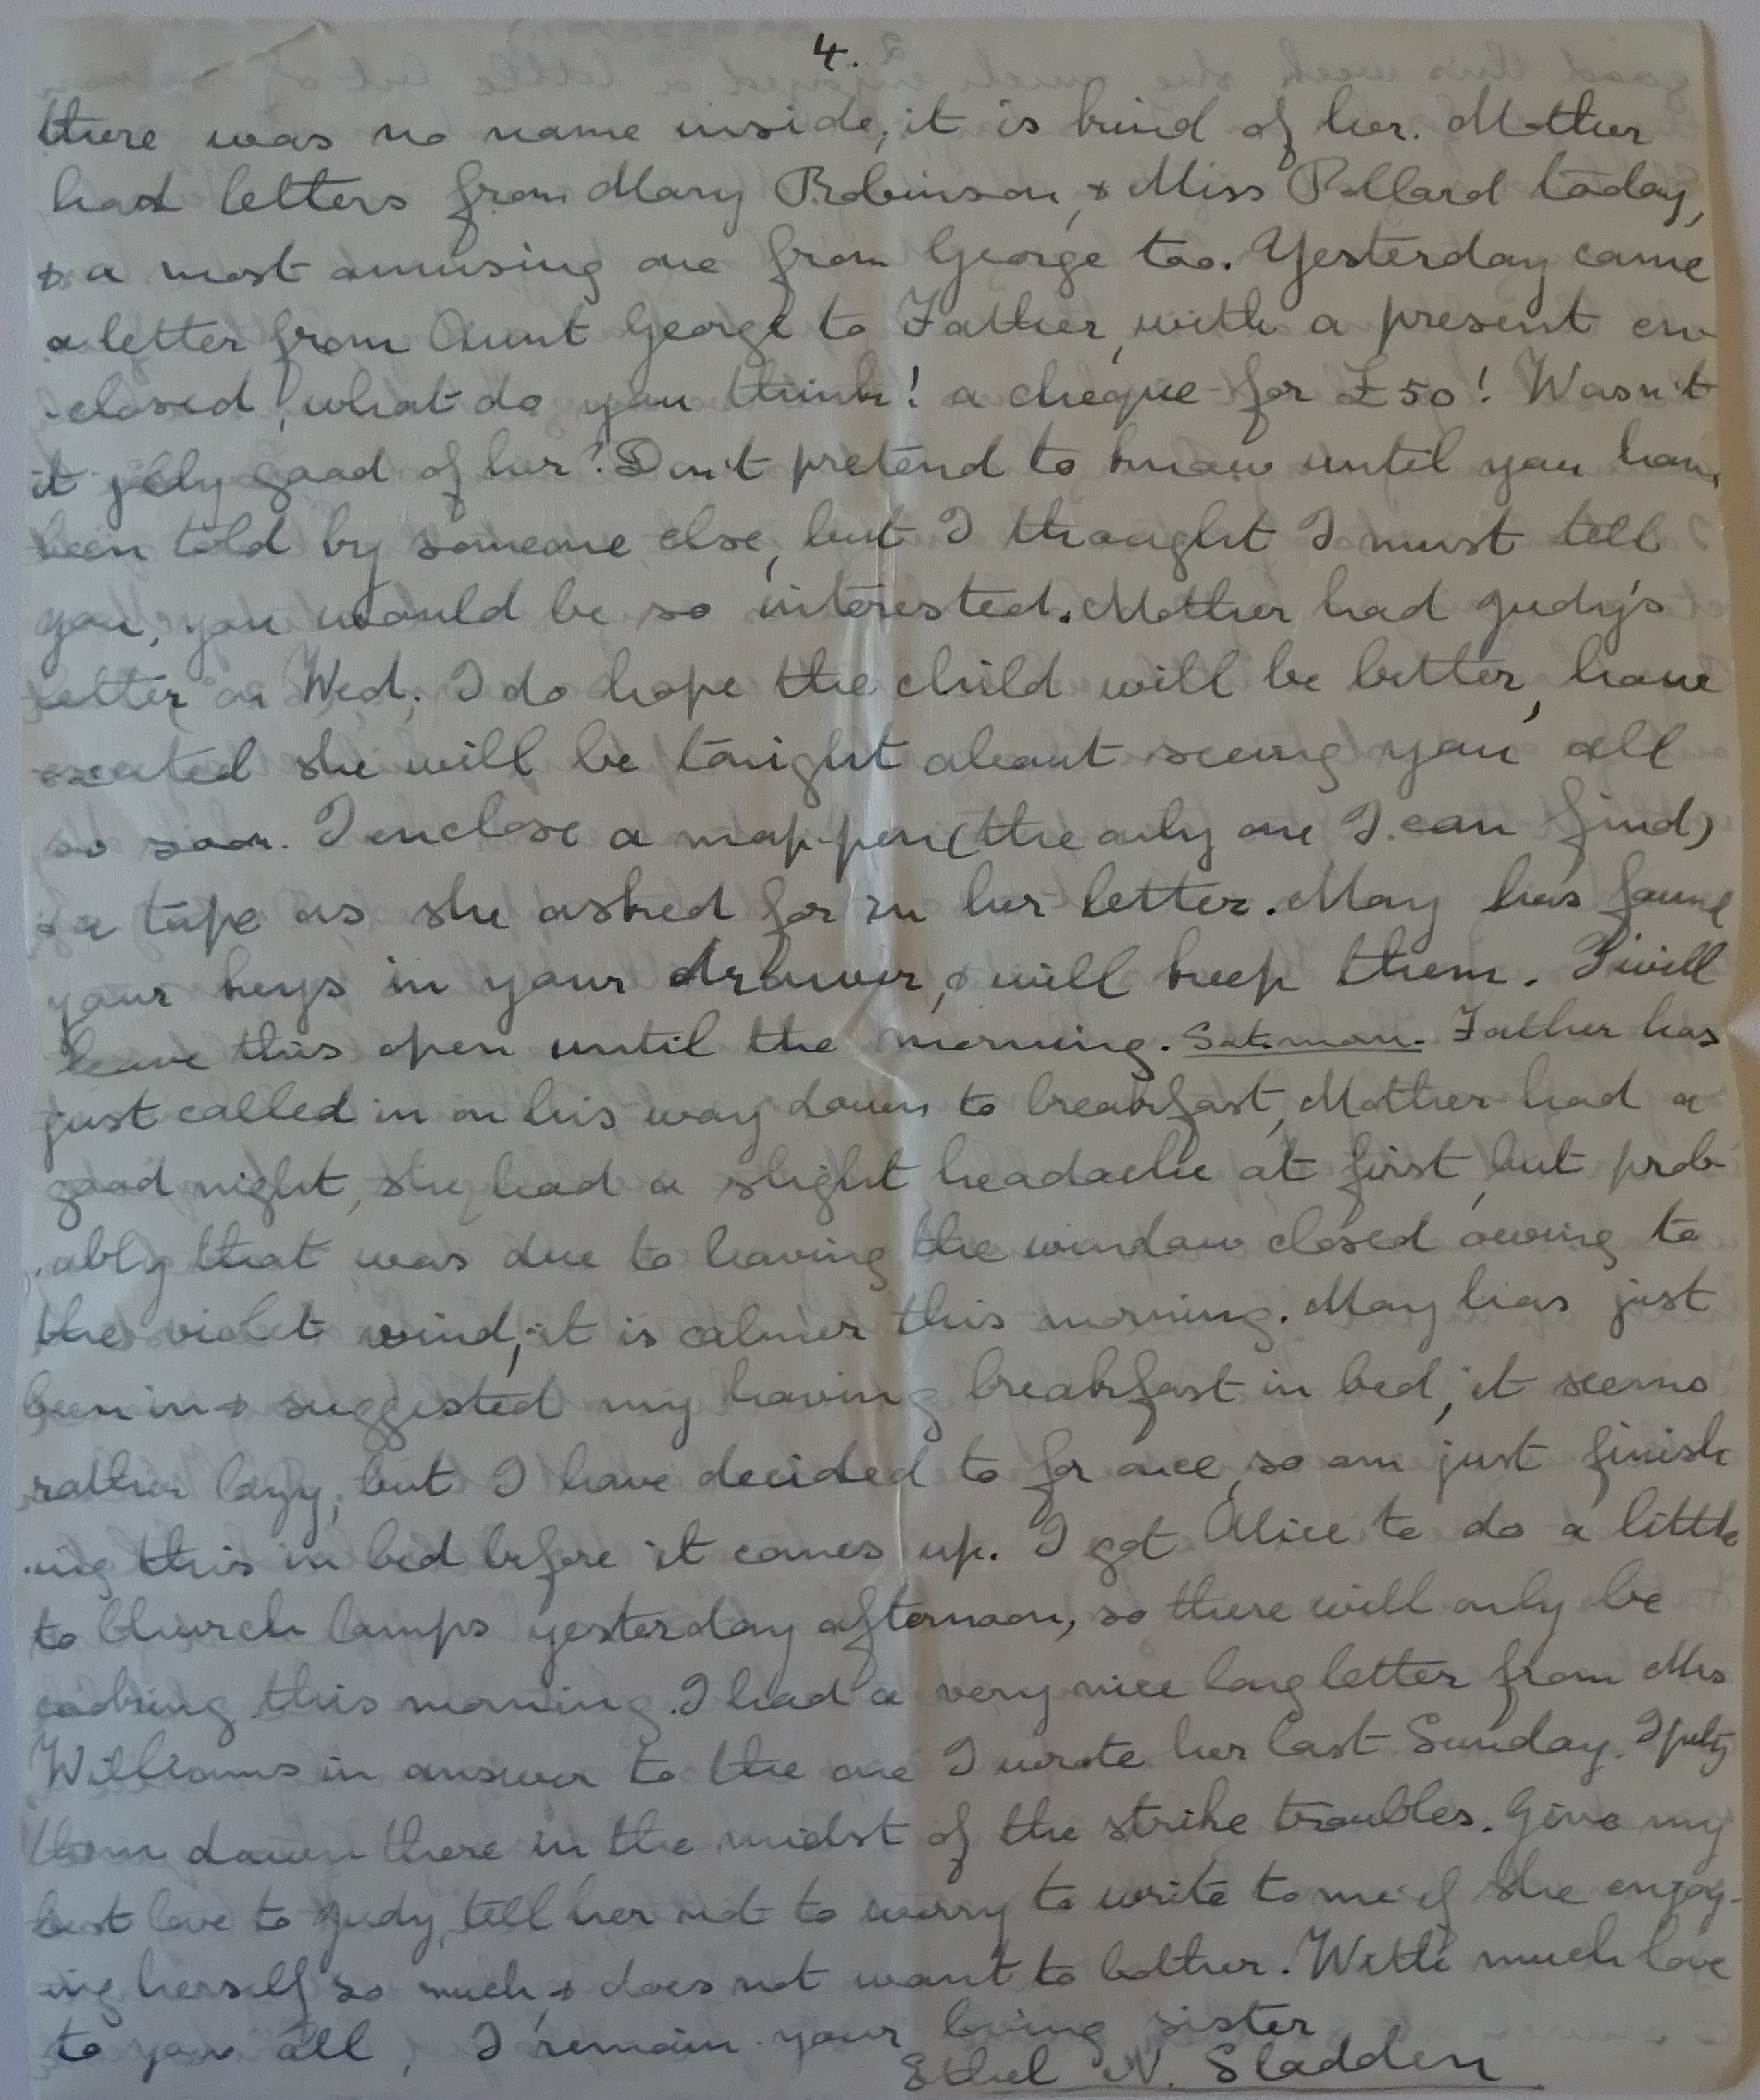 4.
there was no name inside, it is kind of her. Mother
had letters from Mary Robinson, & Miss Pollard today,
& a most amusing one from George too. Yesterday came
a letter from Aunt George to Father, with a present en-
-closed, what do you think! a cheque for £50! Wasn't
it jolly good of her! Don't pretend to know until you have
been told by someone else, but I thought I must tell
you, you would be so interested. Mother had Judy's
letter on Wed. I do hope the child will be better, how
excited she will be tonight about seeing you all
so soon. I enclose a map-pen (the only one I can find)
& a tape as she asked for in her letter. May has found
your keys in your drawer, & will keep them. I will
leave this open until the morning. Sat. morn. Father has
just called in on his way down to breakfast, Mother had a
good night, she had a slight headache at first, but prob-
ably that was due to having the window closed owing to
the violet wind, it is calmer this morning. May has just
been in & suggested my having breakfast in bed, it seems
rather lazy, but I have decided to for once, so am just finish
-ing this in bed before it comes up. I got Alice to do a little
to Church lamps yesterday afternoon, so there will only be
cooking this morning. I had a very nice long letter from Mrs
Williams in answer to the one I wrote her last Sunday. I pity
them down there in the midst of the strike troubles. Give my
best love to Judy, tell her not to worry to write to me if she enjoy-
ing herself so much & does not want to bother. With much love
to you all, I remain your loving sister
Ethel N. Sladden